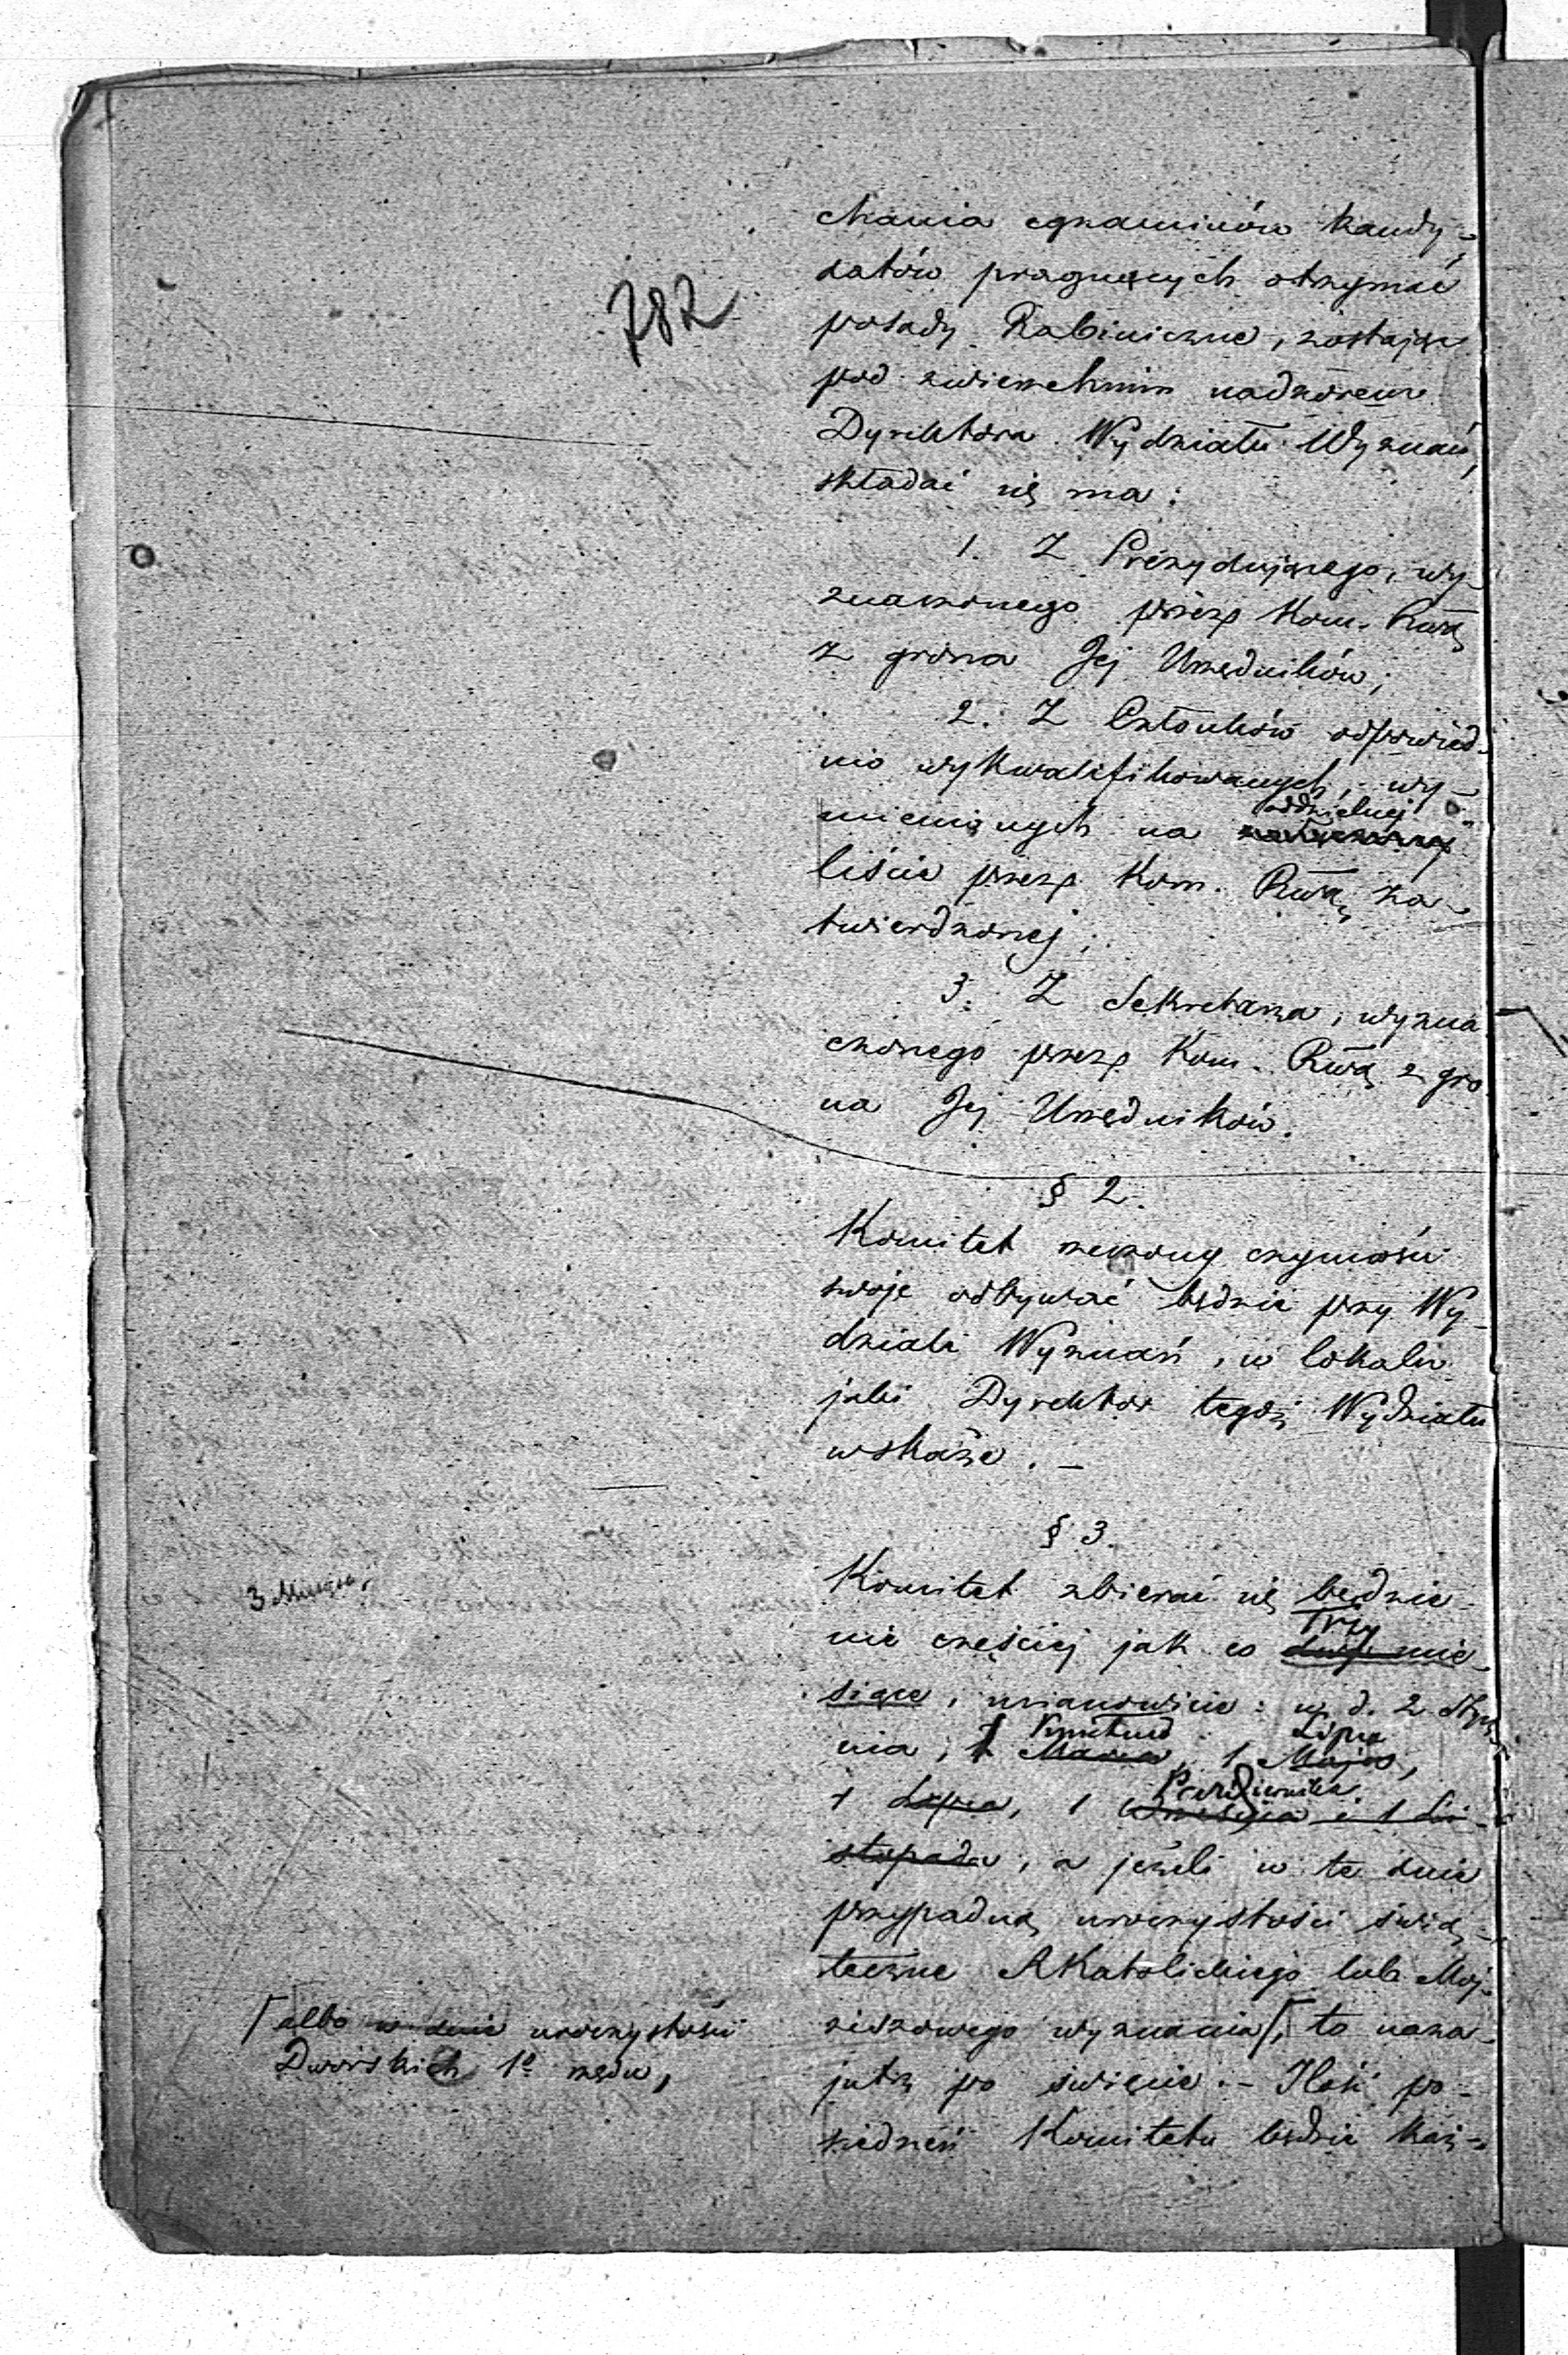 782
chania egzaminów kandy-
datów pragnących otrzymać
posady Rabiniczne, zostając
pod zwierzchnim nadzorem
Dyrektora Wydziału Wyznań,
składać się ma:
1. Z Prezydującego, wy-
znaczonego przez Kom. Rwą
z grona Jej Urzędników;
2. Z Członków odpowied-
nio wykwalifikowanych, wy-
mienionych na oddzielnej
liście przez Kom. Rwą za-
twierdzonej;
3. Z Sekretarza, wyzna
czonego przez Kom. Rwą z gro
na Jej Urzędników.
§ 2.
Komitet rzeczony czynności
swoje odbywać będzie przy Wy-
dziale Wyznań, w lokalu
jaki Dyrektor tegoż Wydziału
wskaże. -
§ 3.
3 Miesiące,
Komitet zbierać się będzie
Trzy
nie częściej jak co dwa mie-
siące, mianowicie: w d. 2 Stycz
Kwietnia Lipca
nia, 1 Marca, 1 Maja,
Października.
1 Lipca, 1 Września i 1 Li-
stopada, a jeżeli w te dnie
przypadną uroczystości świą-
teczne RKatolickiego lub Moj-
żeszowego wyznania, to naza-
jutrz po święcie. - Ilość po-
siedzeń Komitetu będzie każ-
albo w dnie uroczystości
Dworskich 1o rzędu,